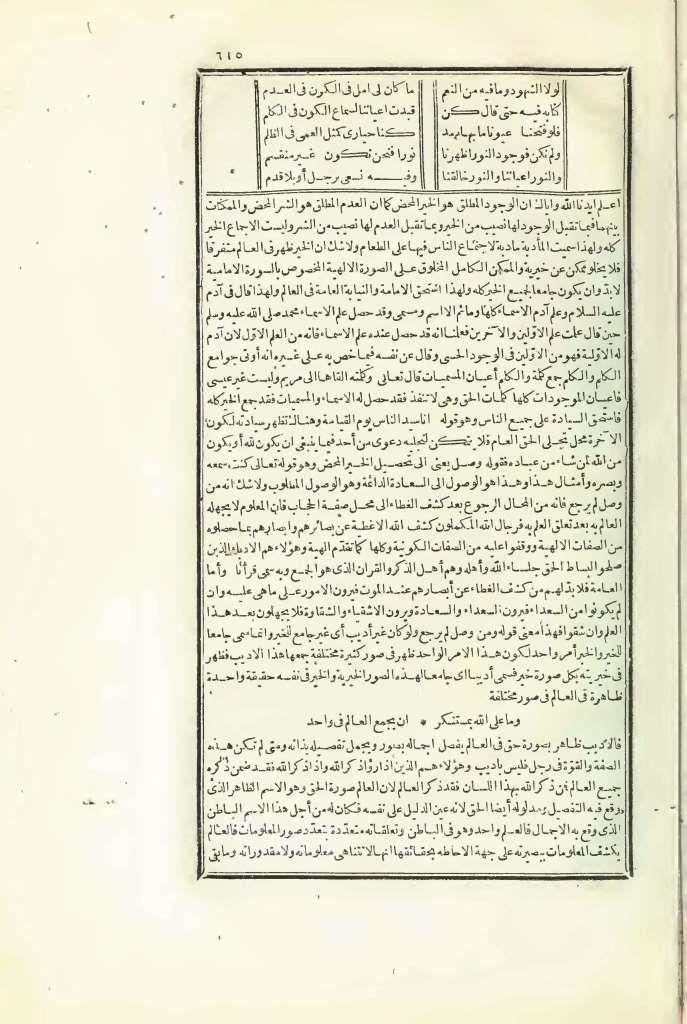 ٦١٥
لولا الشهود وما فيه من النعم ما كان لى امل فى الكون فى العدم
كتابه فيه حتى قال كن قيدت اعياننا لسماع الكون فى الكلم
فلو فتحنا عيونا ما بها رمد كنا حيارى كمثل العمى فى الظلم
ولم نكن فوجود النور اظهرنا نورا فنحن نكون غير منقسم
والنور اعياننا والنور خالقنا وفيه نسعى برجل أو بلا قدم
اعلم ايدنا الله واياك ان الوجود المطلق هو الخير المحض كما ان العدم المطلق هو الشر المحض والممكنات
بينهما فبما تقبل الوجود لها نصيب من الخير وبما تقبل العدم لها نصيب من الشر وليست الاجماع الخير
كله ولهذا سميت المأدبة مأدبة لاجتماع الناس فيها على الطعام ولا شك ان الخير ظهر فى العالم متفرقا
فلا يخلو ممكن عن خيرية والممكن الكامل المخلوق على الصورة الالهية المخصوص بالسورة الامامية
لا بد وان يكون جامعا لجميع الخير كله ولهذا استحق الامامة والنيابة العامة فى العالم ولهذا قال فى آدم
عليه السلام وعلم آدم الاسماء كلها وما ثم الا اسم ومسمى وقد حصل علم الاسماء محمد صلى الله عليه وسلم
حين قال علمت علم الاولين والآخرين فعلمنا انه قد حصل عنده علم الاسماء فانه من العلم الاول لان آدم
له الاولية فهو من الاولين فى الوجود الحسى وقال عن نفسه فيما خص به على غيره انه أوتى جوامع
الكلم والكلم جمع كلمة والكلم أعيان المسميات قال تعالى وكلمته القاها الى مريم وليست غير عيسى
فاعيان الموجودات كلها كلمات الحق وهى لا تنفذ فقد حصل له الاسماء والمسميات فقد جمع الخير كله
فاستحق السيادة على جميع الناس وهو قوله اناسيد الناس يوم القيامة وهناك تظهر سيادته لكون
الآخرة محل تجلى الحق العام فلا يتمكن لتجليه دعوى من أحد فيما ينبغى ان يكون لله أو يكون
من الله لمن شاء من عباده فقوله وصل يعنى الى تحصيل الخير المحض وهو قوله تعالى كنت سمعه
وبصره وأمثال هذا وهذا هو الوصول الى السعادة الدائمة وهو الوصول المطلوب ولا شك انه من
وصل لم يرجع فانه من المحال الرجوع بعد كشف الغطاء الى محل صفة الحجاب فان المعلوم لا يجهله
العالم به بعد تعلق العلم به فرجال الله المكملون كشف الله الاغطية عن بصائرهم وابصارهم بما حصلوه
من الصفات الالهية ووقفوا عليه من الصفات الكونية وكلها كما تقدم الهية وهؤلاء هم الادباء الذين
صلحوا البساط الحق جلساء الله وأهله وهم أهل الذكر والقران الذى هو الجمع وبه سمى قرآنا وأما
العامة فلا بد لهم من كشف الغطاء عن أبصارهم عند الموت فيرون الامور على ما هى عليه وان
لم يكونوا من السعداء فيرون السعداء والسعادة ويرون الاشقياء والشقاوة فلا يجهلون بعد هذا
العلم وان شقوا فهذا معنى قوله ومن وصل لم يرجع ولو كان غير أديب أى غير جامع للخير وانما سمى جامعا
للخير والخير أمر واحد لكون هذا الامر الواحد ظهر فى صور كثيرة مختلفة جمعها هذا الاديب فظهر
فى خيريته بكل صورة خير فسمى أديبا اى جامعا لهذه الصور الخيرية والخير فى نفسه حقيقة واحدة
ظاهرة فى العالم فى صور مختلفة
وما على الله بمستنكر * ان يجمع العالم فى واحد
فالاديب ظاهر بصورة حق فى العالم يفصل اجماله بصور ويجمل تفصيله بذاته ومتى لم تكن هذه
الصفة والقوة فى رجل فليس باديب وهؤلاء هم الذين اذا رؤا ذكر الله واذا ذكر الله فقد ضمن ذكره
جميع العالم فمن ذكر الله بهذا اللسان فقد ذكر العالم لان العالم صورة الحق وهو الاسم الظاهر الذى
وقع فيه التفصيل ومدلوله أيضا الحق لانه عين الدليل على نفسه فكان له من أجل هذا الاسم الباطن
الذى وقع به الاجمال فالعلم واحد وهو فى الباطن وتعلقاته متعددة بتعدد صور المعلومات فالعالم
يكشف المعلومات ببصيرته على جهة الاحاطه بحقائقها انها لا تتناهى معلوماته ولا مقدوراته وما بقى